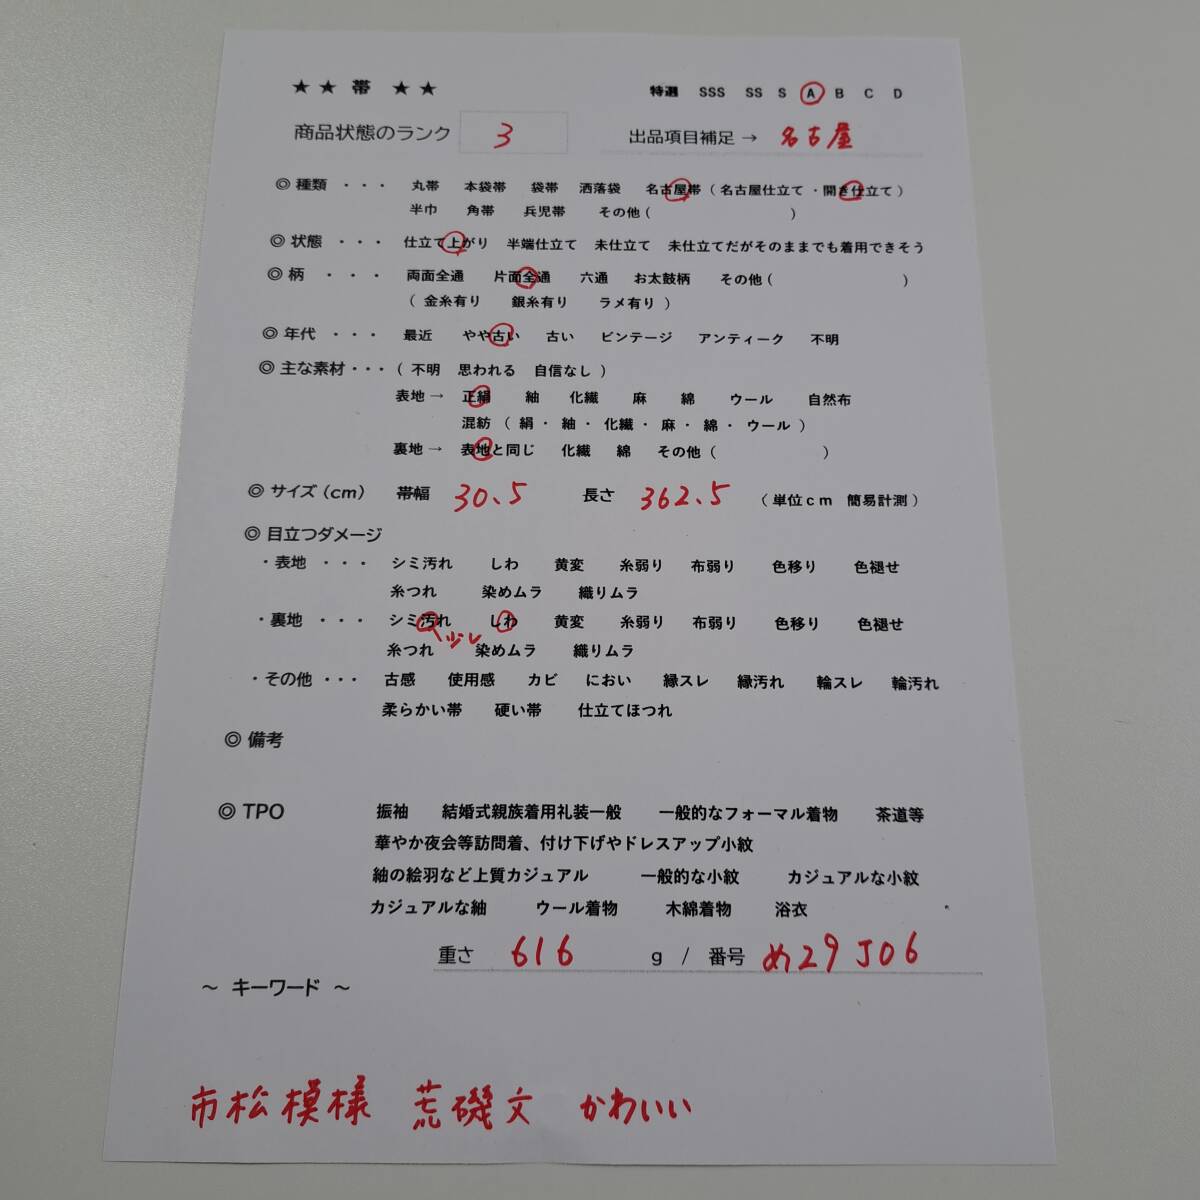 ★ ★ 帯 ★ ★ 特選 SSS SS S A B C D
商品状態のランク 3 出品項目補足 → 名古屋
◎ 種類 ・・・ 丸帯 本袋帯 袋帯 洒落袋 名古屋帯 ( 名古屋仕立て ・開き仕立て )
半巾 角帯 兵児帯 その他 ( )
◎ 状態 ・・・ 仕立て上がり 半端仕立て 未仕立て 未仕立てだがそのままでも着用できそう
◎ 柄 ・・・ 両面全通 片面全通 六通 お太鼓柄 その他 ( )
( 金糸有り 銀糸有り ラメ有り )
◎ 年代 ・・・ 最近 やや古い 古い ビンテージ アンティーク 不明
◎ 主な素材・・・ ( 不明 思われる 自信なし )
表地 → 正絹 紬 化繊 麻 綿 ウール 自然布
混紡 ( 絹・ 紬・ 化繊・ 麻・ 綿・ ウール )
裏地 → 表地と同じ 化繊 綿 その他 ( )
◎ サイズ (cm) 帯幅 30.5 長さ 362.5 ( 単位cm 簡易計測 )
◎ 目立つダメージ
・表地 ・・・ シミ汚れ しわ 黄変 糸弱り 布弱り 色移り 色褪せ
糸つれ 染めムラ 織りムラ
・裏地 ・・・ シミ汚れ しわ 黄変 糸弱り 布弱り 色移り 色褪せ
少し
糸つれ 染めムラ 織りムラ
・その他 ・・・ 古感 使用感 カビ におい 縁スレ 縁汚れ 輪スレ 輪汚れ
柔らかい帯 硬い帯 仕立てほつれ
◎ 備考
◎ TPO 振袖 結婚式親族着用礼装一般 一般的なフォーマル着物 茶道等
華やか夜会等訪問着、付け下げやドレスアップ小紋
紬の絵羽など上質カジュアル 一般的な小紋 カジュアルな小紋
カジュアルな紬 ウール着物 木綿着物 浴衣
重さ 616 g / 番号 め29J06
～ キーワード ～
市松模様 荒磯文 かわいい